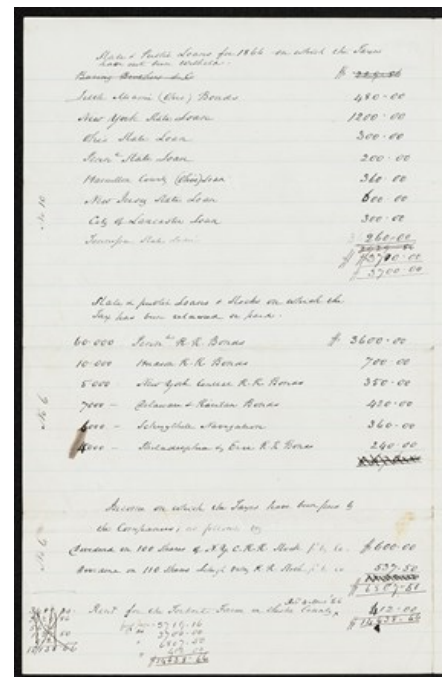 State & Public Loans for 1866 on which the Taxes
have not been withheld.
$
Little Miami (Ohio) Bonds 480.00
New York State Loan 1200.00
Ohio State Loan 300.00
Penna State Loan 200.00
Hamilton County (Ohio) Loan 360.00
No. 10
New Jersey State Loan 600.00
City of Lancaster Loan 300.00
Tennessee State Loan 260.00
$3700.00
$3700.00
State & public Loans & Stocks on which the
Tax has been retained or paid.
60.000 Penna R. R. Bonds $3600.00
10.000 R. R. Bonds 700.00
5000 New York Central R. R. Bonds 350.00
7000 – Delaware & Raritan Bonds 420.00
No 6
6000 – Schuylkill Navigation 360.00
4000 – Philadelphia & Erie R. R. Bonds 240.00
Income on which the Taxes have been paid by
the Companies; as follows viz
No 6
Dividend on 100 Shares of N. Y. C. R. R. Stock $600.00
Dividend on 110 Shares Lehigh Valy R. R. Stock 537.50
$6807.50
Rent for the Farm in County 412.00
3719.16
3700.00
6807.50
412.00
$14638.66
$14638.66